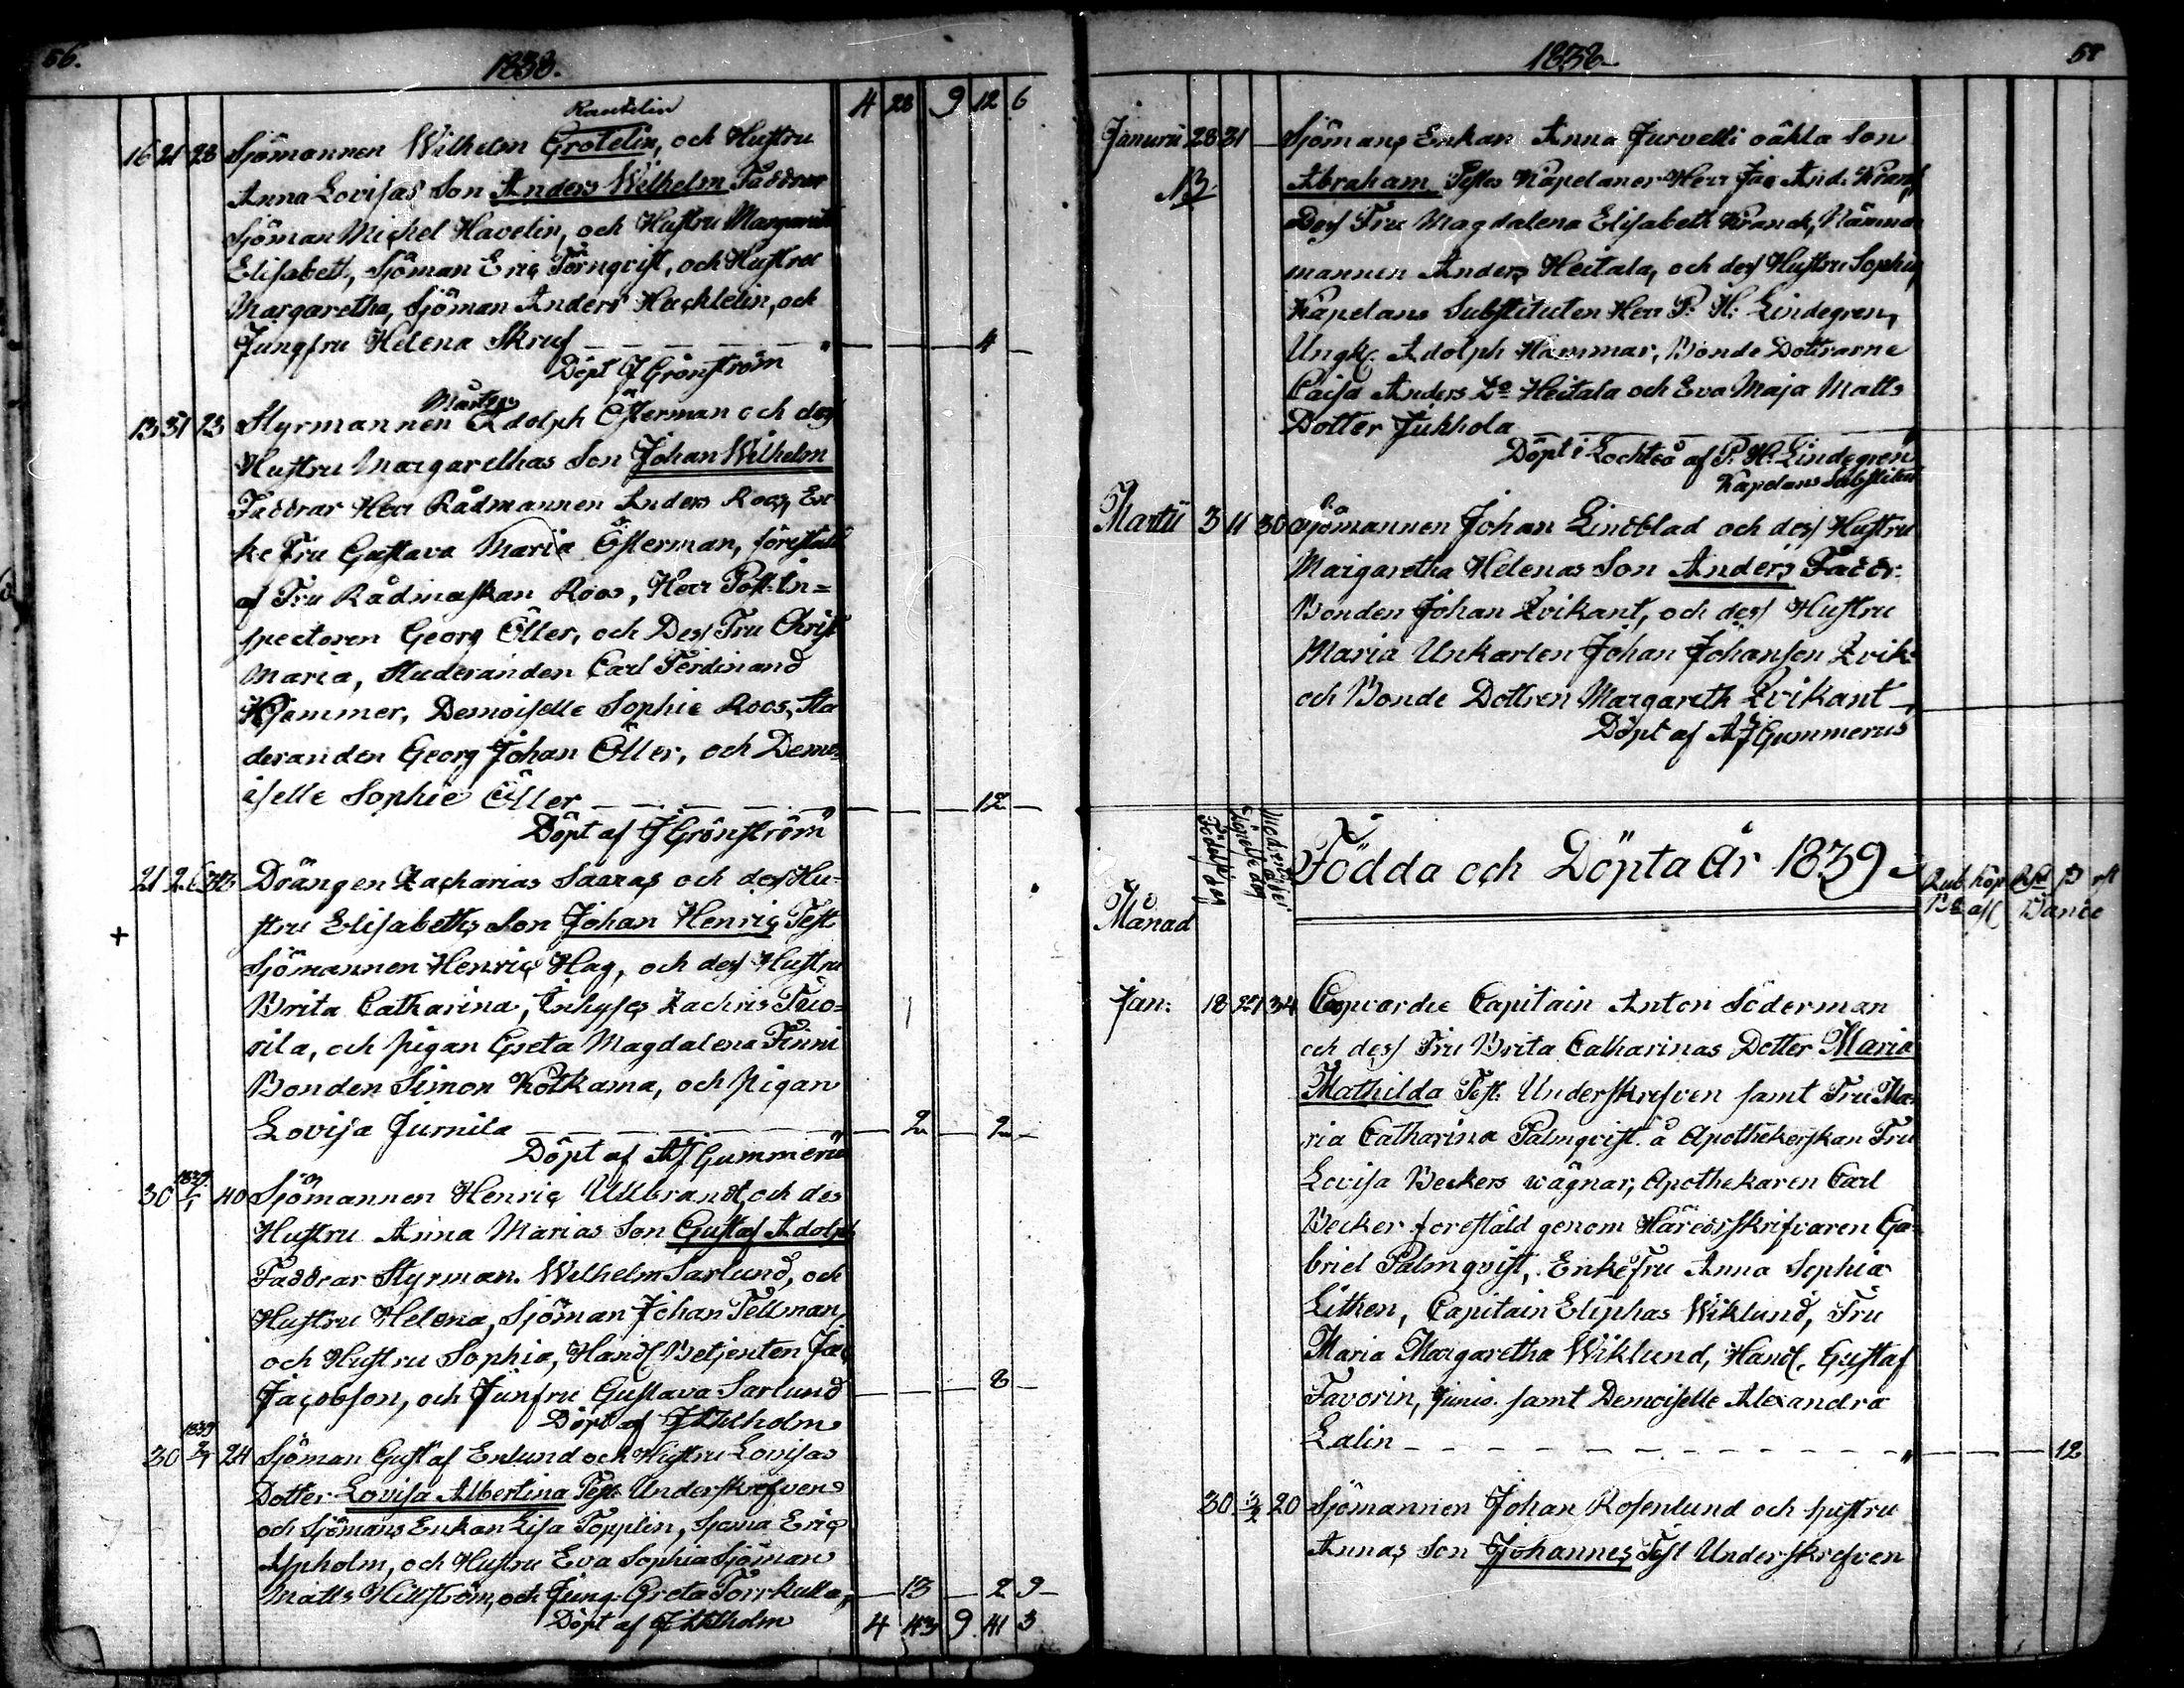 56.
1838.
4 28 9 12 6
Rautelin
16 21 28 Sjömannen Wilhelm Grotelin, och Hustru
Anna Lovisas Son Anders Wilhelm Faddrar
Sjöman Michel Havelin, och Hustru Margaret
Elisabeth, Sjöman Eric Törnqvist, och Hustru
Margaretha, Sjöman Anders Hacklelin, och
Jungfru Helena Skruf — 4 —
Döpt J Grönström
Mårten
13 31 23 Styrmannen Adolph Österman och dess
Hustru Margarethas Son Johan Wilhelm
Faddrar Herr Rådmannen Anders Roos, En
ke Fru Gustava Maria Österman, föreställd
af Fru Rådmaskan Roos, Herr Post-In=
spectoren Georg Öller, och Dess Fru Christ
Maria, Studeranden Carl Ferdinand
Hjemmer, Demoiselle Sophie Roos, Stu
deranden Georg Johan Öller, och Demo
iselle Sophie Öller — 12 —
Döpt af J Grönström
21 26 Drängen Zacharias Saaras och dess Hu-
+ stru Elisabeths Son Johan Henric Test.
Sjömannen Henric Hag, och dess Hustru
Brita Catharina, Inhyses Zachris Tuo=
vila, och pigan Greta Magdalena Finni
Bonden Simon Kotkama, och pigan
Lovisa Jumila — 2 — 2 —
Döpt af AJ Gummerus
1839
30 1/1 40 Sjömannen Henric Ullbrandt, och des
Hustru Anna Marias Son Gustaf Adolph
Faddrar Styrman. Wilhelm Sarlund, och
Hustru Helena, Sjöman Johan Tellman,
och Hustru Sophia, Handl. Betjenten Jac
Jacobson, och Junfru Gustava Sarlund — 8 —
Döpt af
1839
30 24 Sjöman Gustaf Enlund och Hustru Lovisas
Dotter Lovisa Albertina Test. Underskrefven
och Sjömans Enkan Lisa Topplin, Sjöma Eric
Aspholm, och Hustru Eva Sophia Sjöman
Matts Hillström, och Jung. Greta Torrkulla — 13 — 2 9 —
Döpt af
4 43 9 41 3
1838
57
Januarii 28 31 Sjömans Enkan Anna Jurvelli oäkta Son
N.B. Abraham Testes Kapelanen Herr Jac And. Kranck
Dess Fru Magdalena Elisabeth Kranck, Nämnd
mannen Anders Heitala, och dess Hustru Sophia
Kapelans Substituten Herr P. H. Lindegren,
Ungk. Adolph Hammar, Bonde Dottrarne
Caisa Anders Do Heitala och Eva Maja Matts
Dotter Jukhola —
Döpt i Lochteå af P. H. Lindegren
Kapelans Substitut
Martii 3 11 30 Sjömannen Johan Lindblad och dess Hustru
Margaretha Helenas Son Anders Faddr.
Bonden Johan Kvikant, och dess Hustru
Maria Unkarlen Johan Johanson Kvik:
och Bonde Dottren Margareth Kvikant —
Döpt af AJ Gummerus
Månad
Födelse dag
Döpelse dag
Modrens ålder
Födda och Döpta År 1839
Rub. kop.
Banco
Jan: 18 34 Copvardie Capitain Anton Söderman
och dess Fru Brita Catharinas Dotter Maria
Mathilda Test. Underskrefven samt Fru Ma
ria Catharina Palmqvist å Apothekerskan Fru
Lovisa Beckers vägnar, Apothekaren Carl
Becker foreställd genom Häradsskrifvaren Ga
briel Palmqvist, Enkefru Anna Sophia
Lithen, Capitain Eliphas Wiklund, Fru
Maria Margaretha Wiklund, Handl. Gustaf
Favorin, Junio. samt Demoiselle Alexandra
Lalin — 12
30 20 Sjömannen Johan Rosenlund och hustru
Annas Son Johannes Test Underskrefven